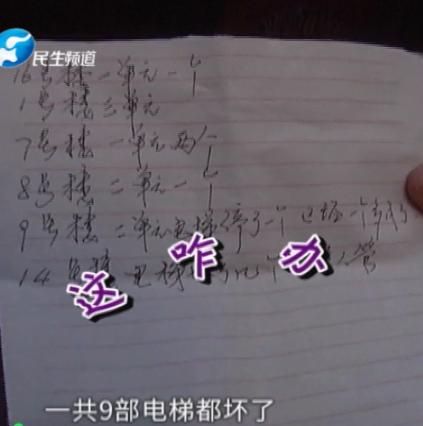 民生频道
16号楼一单元一个
1号楼三单元
7号楼一单元两个
8号楼二单元一个
9号楼二单元电梯停了一个
14号楼电梯
这咋办
一共9部电梯都坏了